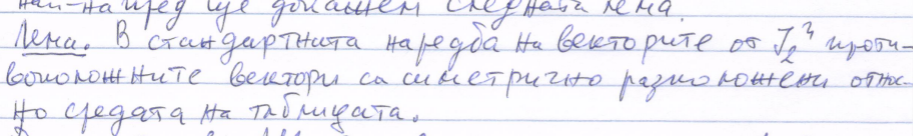 най-напред ще докажем следната лема.
Лема. В стандартната наредба на векторите от J₂ⁿ проти-
воположните вектори са симетрично разположени относ-
но средата на таблицата.